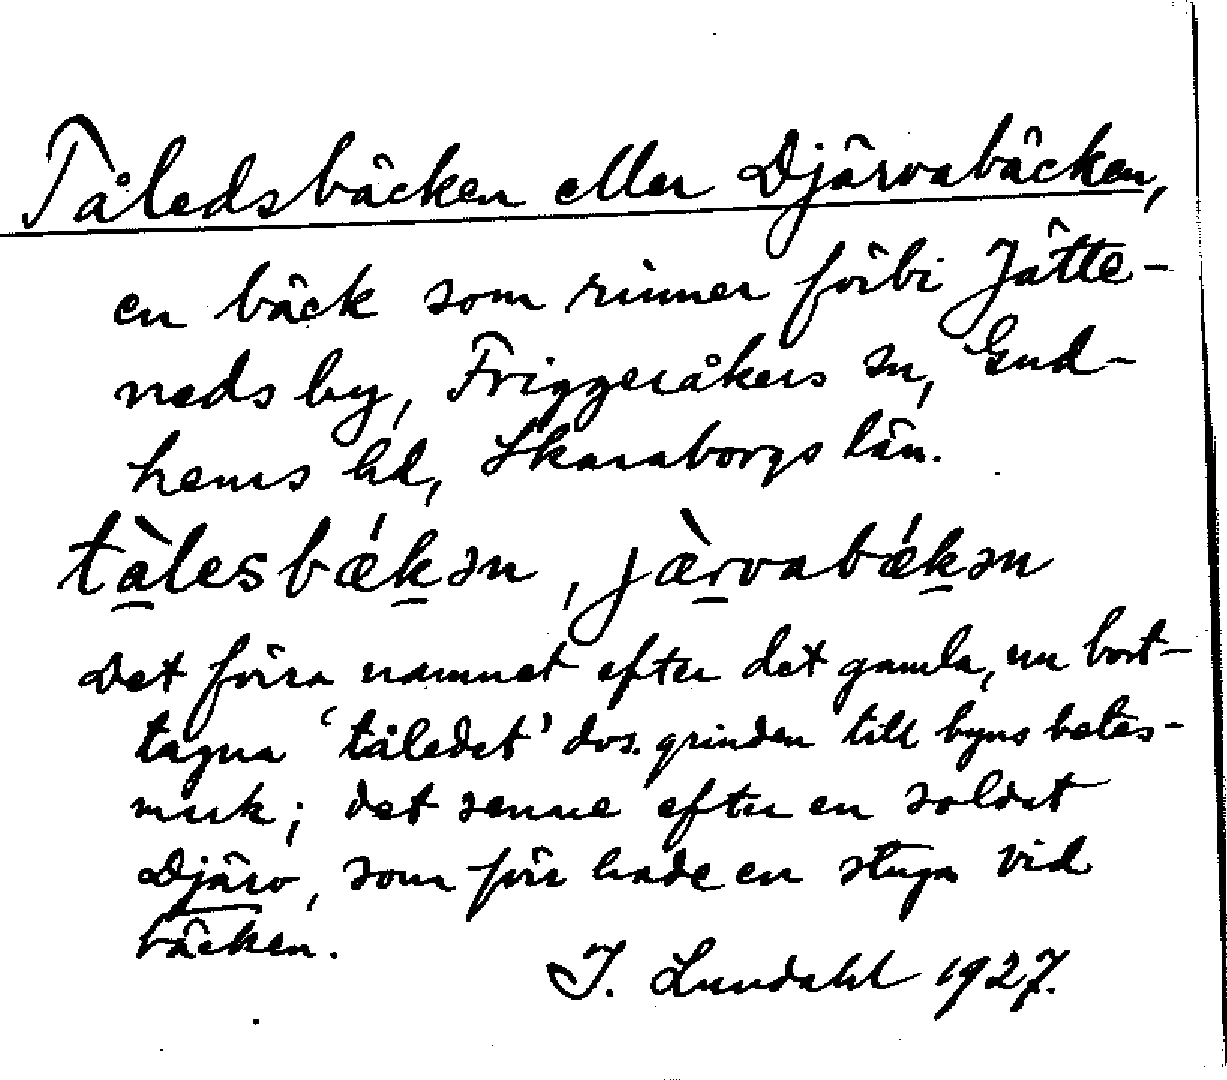 Tåledsbäcken eller Djärvabäcken,
en bäck som rinner förbi Jätte-
neds by, Friggeråkers sn, Gud-
hems hd, Skaraborgs län.
tàlesbǽkən, jæ̀rvabǽkən
Det förra namnet efter det gamla, nu bort-
tagna 'tåledet' dvs. grinden till byns betes-
mark; det senare efter en soldat
Djärv, som förr hade en stuga vid
bäcken.
I. Lundahl 1927.